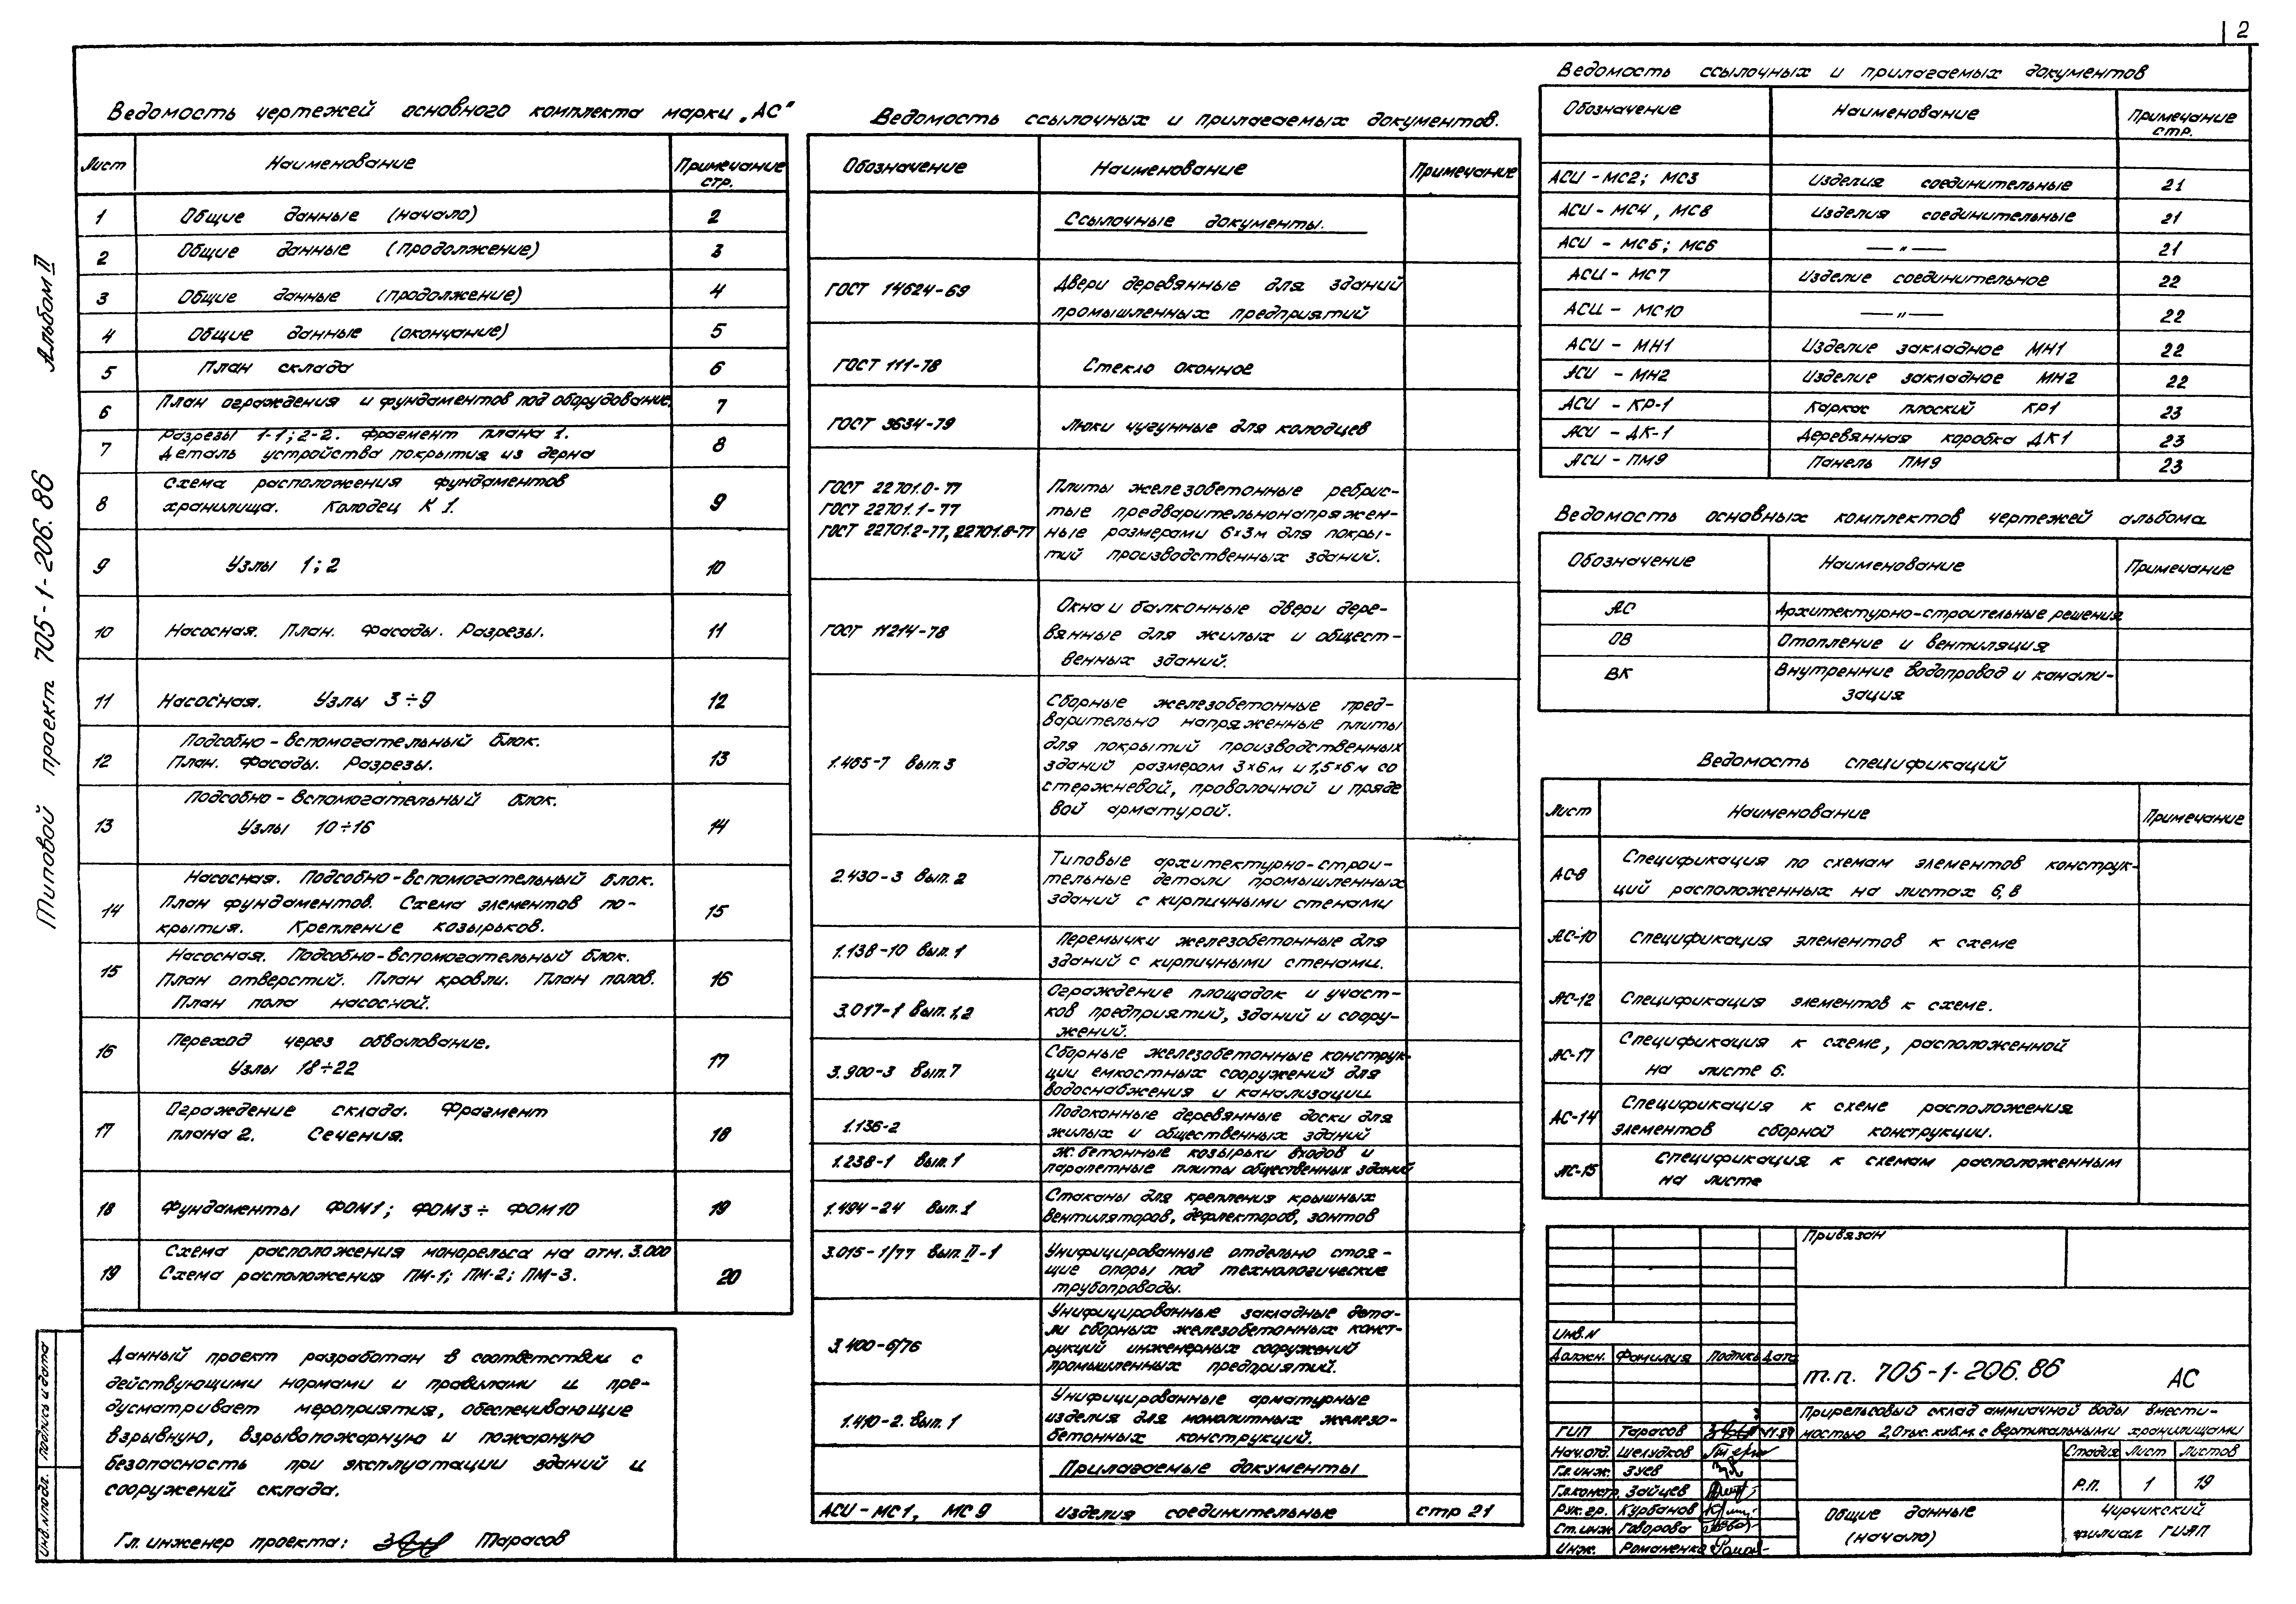 2
Альбом II
Типовой проект 705-1-206.86
Ведомость чертежей основного комплекта марки „АС"
Лист Наименование Примечание стр.
1 Общие данные (начало) 2
2 Общие данные (продолжение) 3
3 Общие данные (продолжение) 4
4 Общие данные (окончание) 5
5 План склада 6
6 План ограждения и фундаментов под оборудование. 7
7 Разрезы 1-1; 2-2. Фрагмент плана 1. 8
Деталь устройства покрытия из дерна
8 Схема расположения фундаментов 9
хранилища. Колодец К 1.
9 Узлы 1; 2 10
10 Насосная. План. Фасады. Разрезы. 11
11 Насосная. Узлы 3÷9 12
12 Подсобно-вспомогательный блок. 13
План. Фасады. Разрезы.
13 Подсобно-вспомогательный блок. 14
Узлы 10÷16
14 Насосная. Подсобно-вспомогательный блок. 15
План фундаментов. Схема элементов по-
крытия. Крепление козырьков.
15 Насосная. Подсобно-вспомогательный блок. 16
План отверстий. План кровли. План полов.
План пола насосной.
16 Переход через обвалование. 17
Узлы 18÷22
17 Ограждение склада. Фрагмент 18
плана 2. Сечения.
18 Фундаменты ФОМ1; ФОМ3÷ ФОМ10 19
19 Схема расположения монорельса на отм. 3.000 20
Схема расположения ПМ-1; ПМ-2; ПМ-3.
Данный проект разработан в соответствии с
действующими нормами и правилами и пре-
дусматривает мероприятия, обеспечивающие
взрывную, взрывопожарную и пожарную
безопасность при эксплуатации зданий и
сооружений склада.
Гл. инженер проекта: Тарасов
Инв.№подл. Подпись и дата
Ведомость ссылочных и прилагаемых документов.
Обозначение Наименование Примечание
Ссылочные документы.
ГОСТ 14624-69 Двери деревянные для зданий
промышленных предприятий
ГОСТ 111-78 Стекло оконное
ГОСТ 3634-79 Люки чугунные для колодцев
ГОСТ 22701.0-77 Плиты железобетонные ребрис-
ГОСТ 22701.1-77 тые предварительнонапряжен-
ГОСТ 22701.2-77, 22701.8-77 ные размерами 6×3м для покры-
тий производственных зданий.
ГОСТ 11214-78 Окна и балконные двери дере-
вянные для жилых и общест-
венных зданий.
1.465-7 вып. 3 Сборные железобетонные пред-
варительно напряженные плиты
для покрытий производственных
зданий размером 3×6м и 1,5×6м со
стержневой, проволочной и пряде
вой арматурой.
2.430-3 вып. 2 Типовые архитектурно-строи-
тельные детали промышленных
зданий с кирпичными стенами
1.138-10 вып. 1 Перемычки железобетонные для
зданий с кирпичными стенами.
3.017-1 вып. 1,2 Ограждение площадок и участ-
ков предприятий, зданий и соору-
жений.
3.900-3 вып. 7 Сборные железобетонные конструк-
ции емкостных сооружений для
водоснабжения и канализации
1.136-2 Подоконные деревянные доски для
жилых и общественных зданий
1.238-1 вып. 1 Ж.бетонные козырьки входов и
парапетные плиты общественных зданий
1.494-24 вып. 1 Стаканы для крепления крышных
вентиляторов, дефлекторов, зонтов
3.015-1/77 вып. II-1 Унифицированные отдельно стоя-
щие опоры под технологические
трубопроводы.
3.400-6/76 Унифицированные закладные дета-
ли сборных железобетонных конст-
рукций инженерных сооружений
промышленных предприятий.
1.410-2. вып. 1 Унифицированные арматурные
изделия для монолитных железо-
бетонных конструкций.
Прилагаемые документы
АСИ-МС1, МС9 Изделия соединительные стр 21
Ведомость ссылочных и прилагаемых документов
Обозначение Наименование Примечание стр.
АСИ-МС2; МС3 Изделия соединительные 21
АСИ-МС4, МС8 Изделия соединительные 21
АСИ-МС5; МС6 —"— 21
АСИ-МС7 Изделие соединительное 22
АСИ-МС10 —"— 22
АСИ-МН1 Изделие закладное МН1 22
АСИ-МН2 Изделие закладное МН2 22
АСИ-КР-1 Каркас плоский КР1 23
АСИ-ДК-1 Деревянная коробка ДК1 23
АСИ-ПМ9 Панель ПМ9 23
Ведомость основных комплектов чертежей альбома
Обозначение Наименование Примечание
АС Архитектурно-строительные решения
ОВ Отопление и вентиляция
ВК Внутренние водопровод и канали-
зация
Ведомость спецификаций
Лист Наименование Примечание
АС-8 Спецификация по схемам элементов конструк-
ций расположенных на листах 6, 8
АС-10 Спецификация элементов к схеме
АС-12 Спецификация элементов к схеме.
АС-17 Спецификация к схеме, расположенной
на листе 6.
АС-14 Спецификация к схеме расположения
элементов сборной конструкции.
АС-15 Спецификация к схемам расположенным
на листе
Привязан
Инв.N
Должн. Фамилия Подпись Дата
т.п. 705-1-206.86 АС
Прирельсовый склад аммиачной воды вмести-
мостью 2,0 тыс. куб.м. с вертикальными хранилищами
ГИП Тарасов
Нач.отд. Шелудков
Гл.инж. Зуев
Гл.констр. Зайцев
Рук.гр. Курбанов
Ст.инж Говорова
Инж. Романенко
Стадия Лист Листов
Р.П. 1 19
Общие данные
(начало)
Чирчикский
филиал ГИАП